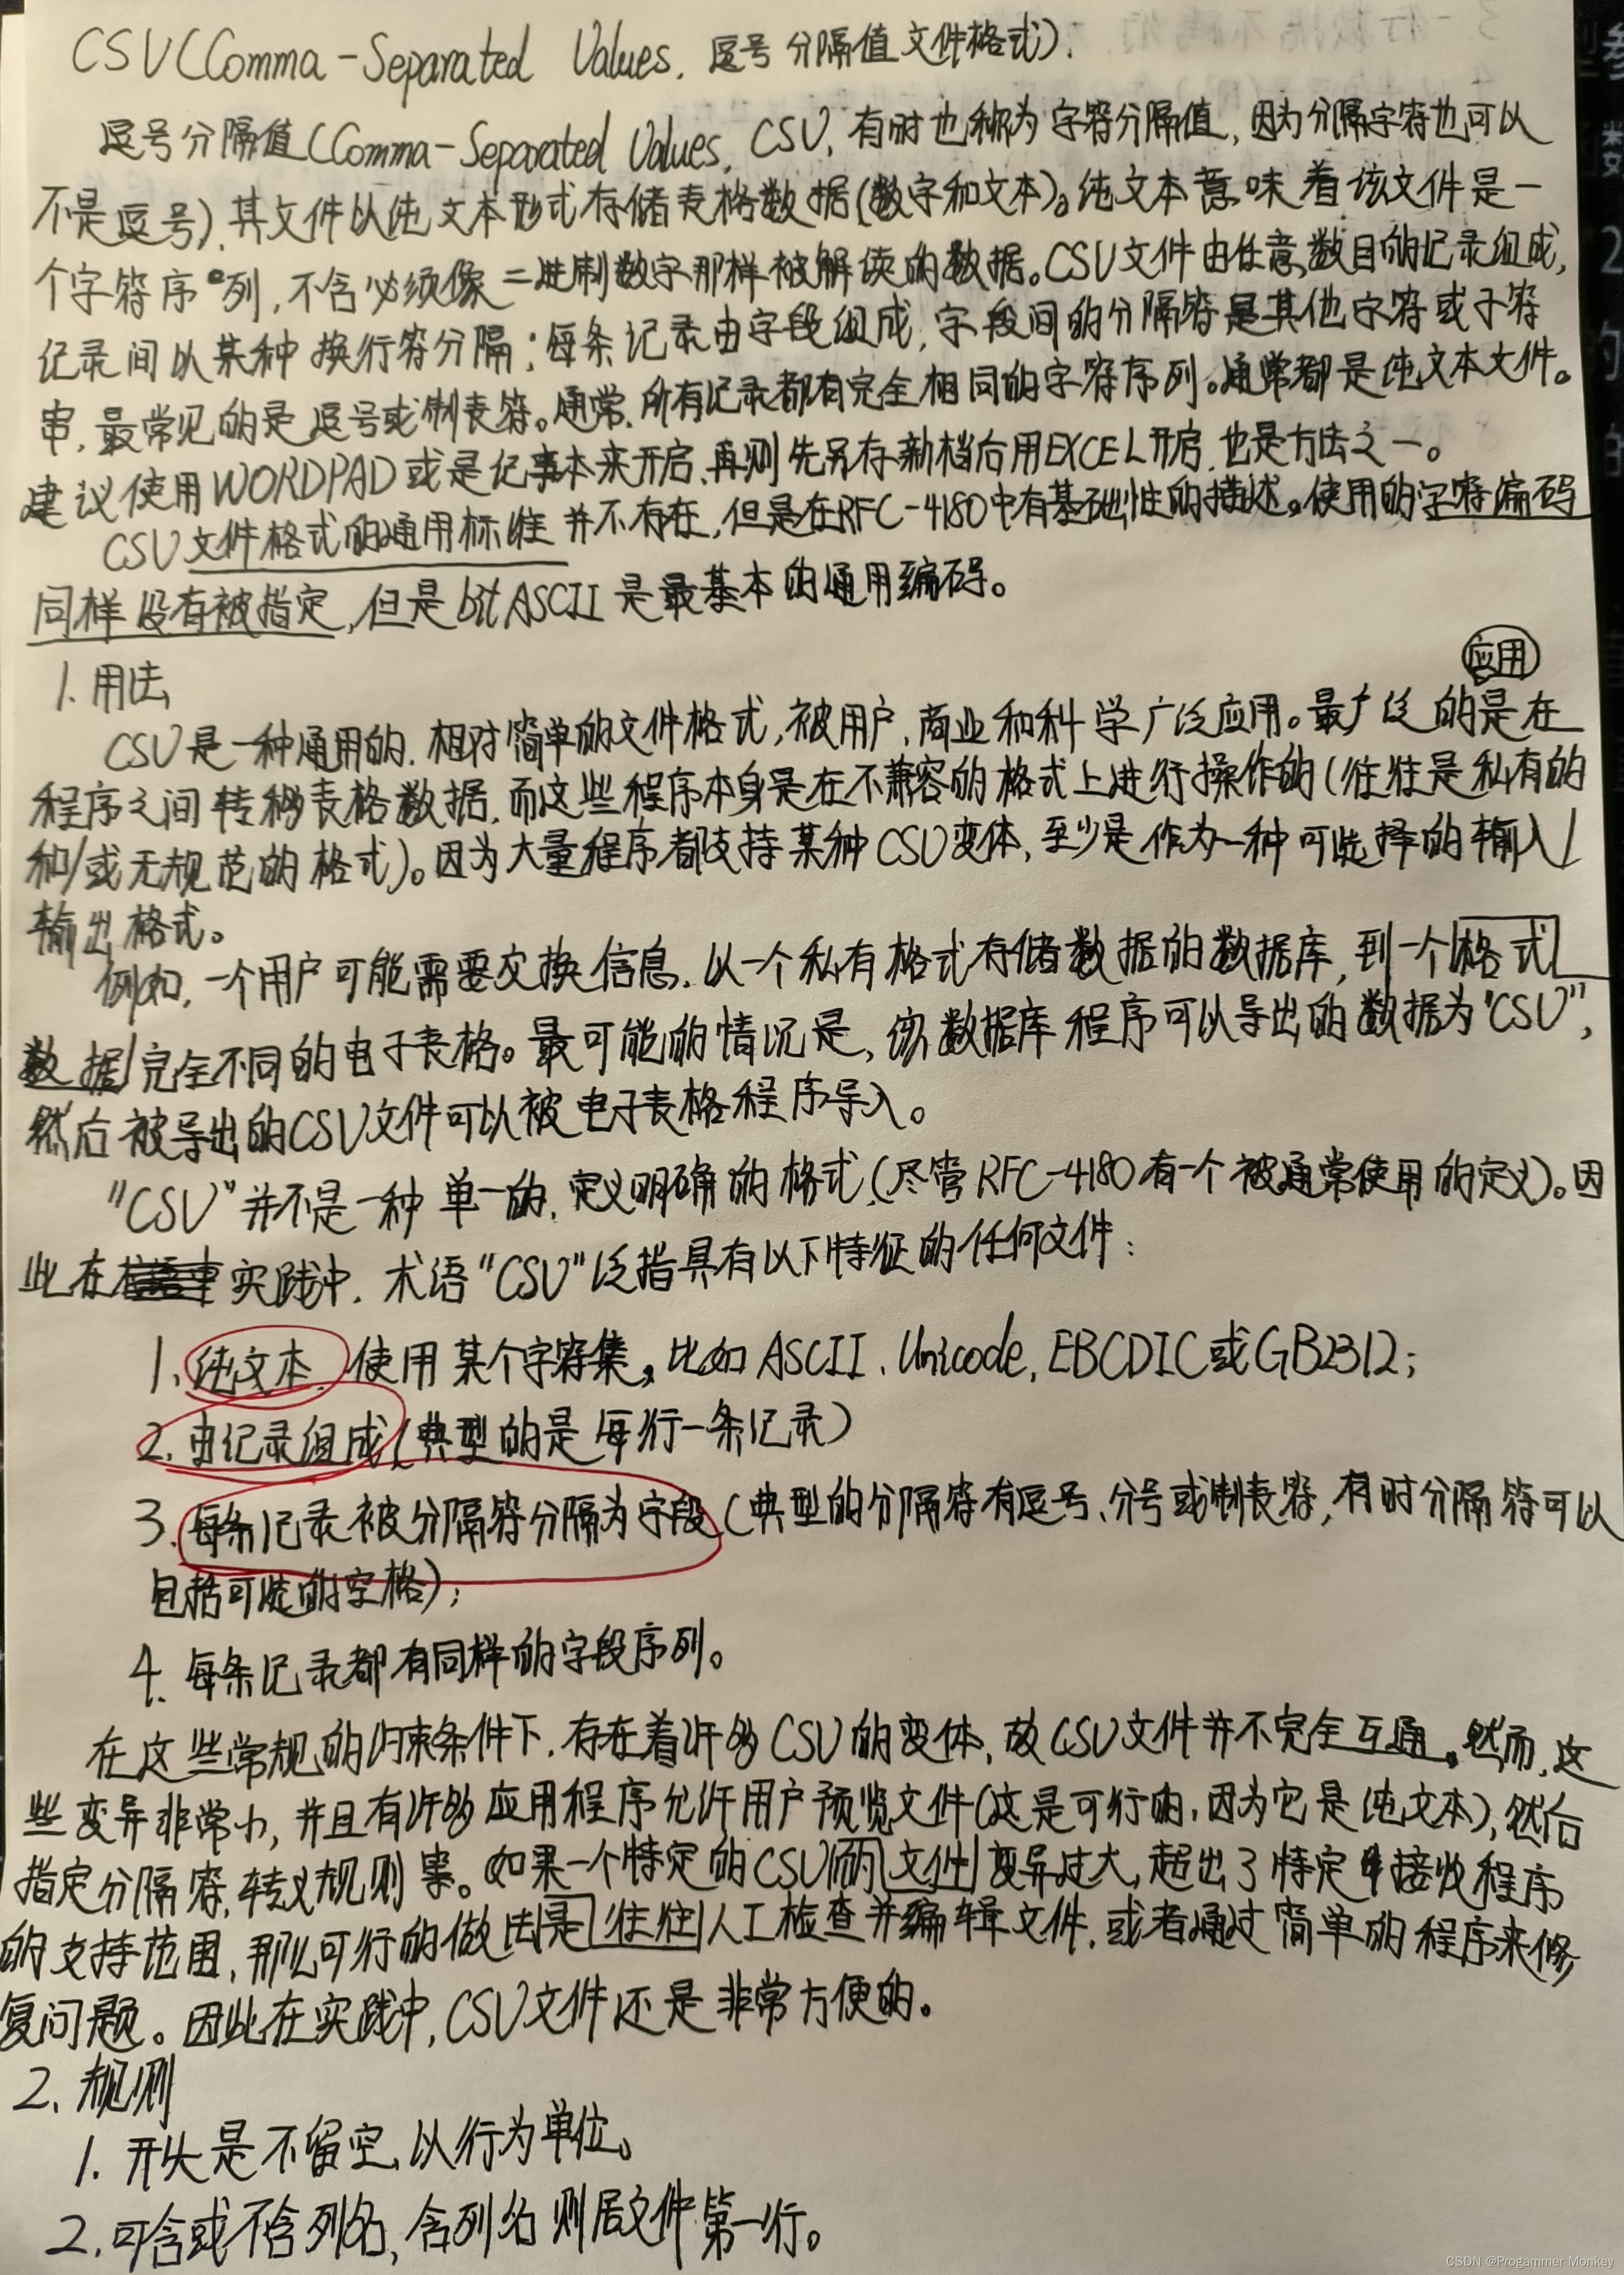 CSV(Comma-Separated Values, 逗号分隔值文件格式).
逗号分隔值(Comma-Separated Values, CSV, 有时也称为字符分隔值, 因为分隔字符也可以
不是逗号), 其文件以纯文本形式存储表格数据(数字和文本)。纯文本意味着该文件是一
个字符序列, 不含必须像二进制数字那样被解读的数据。CSV文件由任意数目的记录组成,
记录间以某种换行符分隔; 每条记录由字段组成, 字段间的分隔符是其他字符或字符
串, 最常见的是逗号或制表符。通常, 所有记录都有完全相同的字符序列。通常都是纯文本文件。
建议使用WORDPAD或是记事本来开启, 再则先另存新档后用EXCEL开启, 也是方法之一。
CSV文件格式的通用标准并不存在, 但是在RFC-4180中有基础性的描述。使用的字符编码
同样没有被指定, 但是bitASCII是最基本的通用编码。
1. 用法
应用
CSV是一种通用的, 相对简单的文件格式, 被用户, 商业和科学广泛应用。最广泛的是在
程序之间转移表格数据, 而这些程序本身是在不兼容的格式上进行操作的(往往是私有的
和/或无规范的格式)。因为大量程序都支持某种CSV变体, 至少是作为一种可选择的输入/
输出格式。
例如, 一个用户可能需要交换信息, 以一个私有格式存储数据的数据库, 到一个格式
数据完全不同的电子表格。最可能的情况是, 该数据库程序可以导出的数据为"CSV",
然后被导出的CSV文件可以被电子表格程序导入。
"CSV"并不是一种单一的, 定义明确的格式(尽管RFC-4180有一个被通常使用的定义)。因
此在实践中, 术语"CSV"泛指具有以下特征的任何文件:
1. 纯文本, 使用某个字符集, 比如ASCII、Unicode, EBCDIC或GB2312;
2. 由记录组成(典型的是每行一条记录)
3. 每条记录被分隔符分隔为字段(典型的分隔符有逗号、分号或制表符, 有时分隔符可以
包括可选的空格);
4. 每条记录都有同样的字段序列。
在这些常规的约束条件下, 存在着许多CSV的变体, 故CSV文件并不完全互通。然而, 这
些变异非常小, 并且有许多应用程序允许用户预览文件(这是可行的, 因为它是纯文本), 然后
指定分隔符, 转义规则等。如果一个特定的CSV文件变异过大, 超出了特定接收程序
的支持范围, 那么可行的做法是往往人工检查并编辑文件, 或者通过简单的程序来修
复问题。因此在实践中, CSV文件还是非常方便的。
2. 规则
1. 开头是不留空, 以行为单位。
2. 可含或不含列名, 含列名则居文件第一行。
CSDN @Progammer Monkey